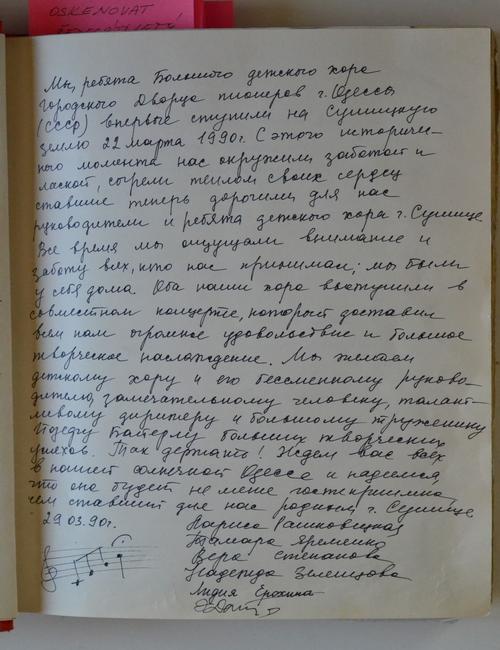 OSKENOVAT
Мы, ребята Большого детского хора
городского Дворца пионеров г. Одессы
(СССР) впервые ступили на Сушицкую
землю 22 марта 1990г. С этого историчи-
ного момента нас окружили заботой и
лаской, согрели теплом своих сердец
ставшие теперь дорогими для нас
руководители и ребята детского хора г. Сушице
Все время мы ощущали внимание и
заботу всех, кто нас принимал; мы были
у себя дома. Оба наши хора выступили в
совместном концерте, который доставил
всем нам огромное удовольствие и большое
творческое наслаждение. Мы желаем
детскому хору и его бессменному руково-
дителю, замечательному человеку, талант-
ливому дирижеру и большому труженику
Йозефу Байерлу больших творческих
успехов. Так держать! Ждем вас всех
в нашей солнечной Одессе и надеемся,
что она будет не менее гостеприимна,
чем ставший для нас родным г. Сушице
29.03.90г.
Лариса Рашковицкая
Тамара Яременко
Вера Степанова
Надежда Зеленцова
Лидия Ерохина